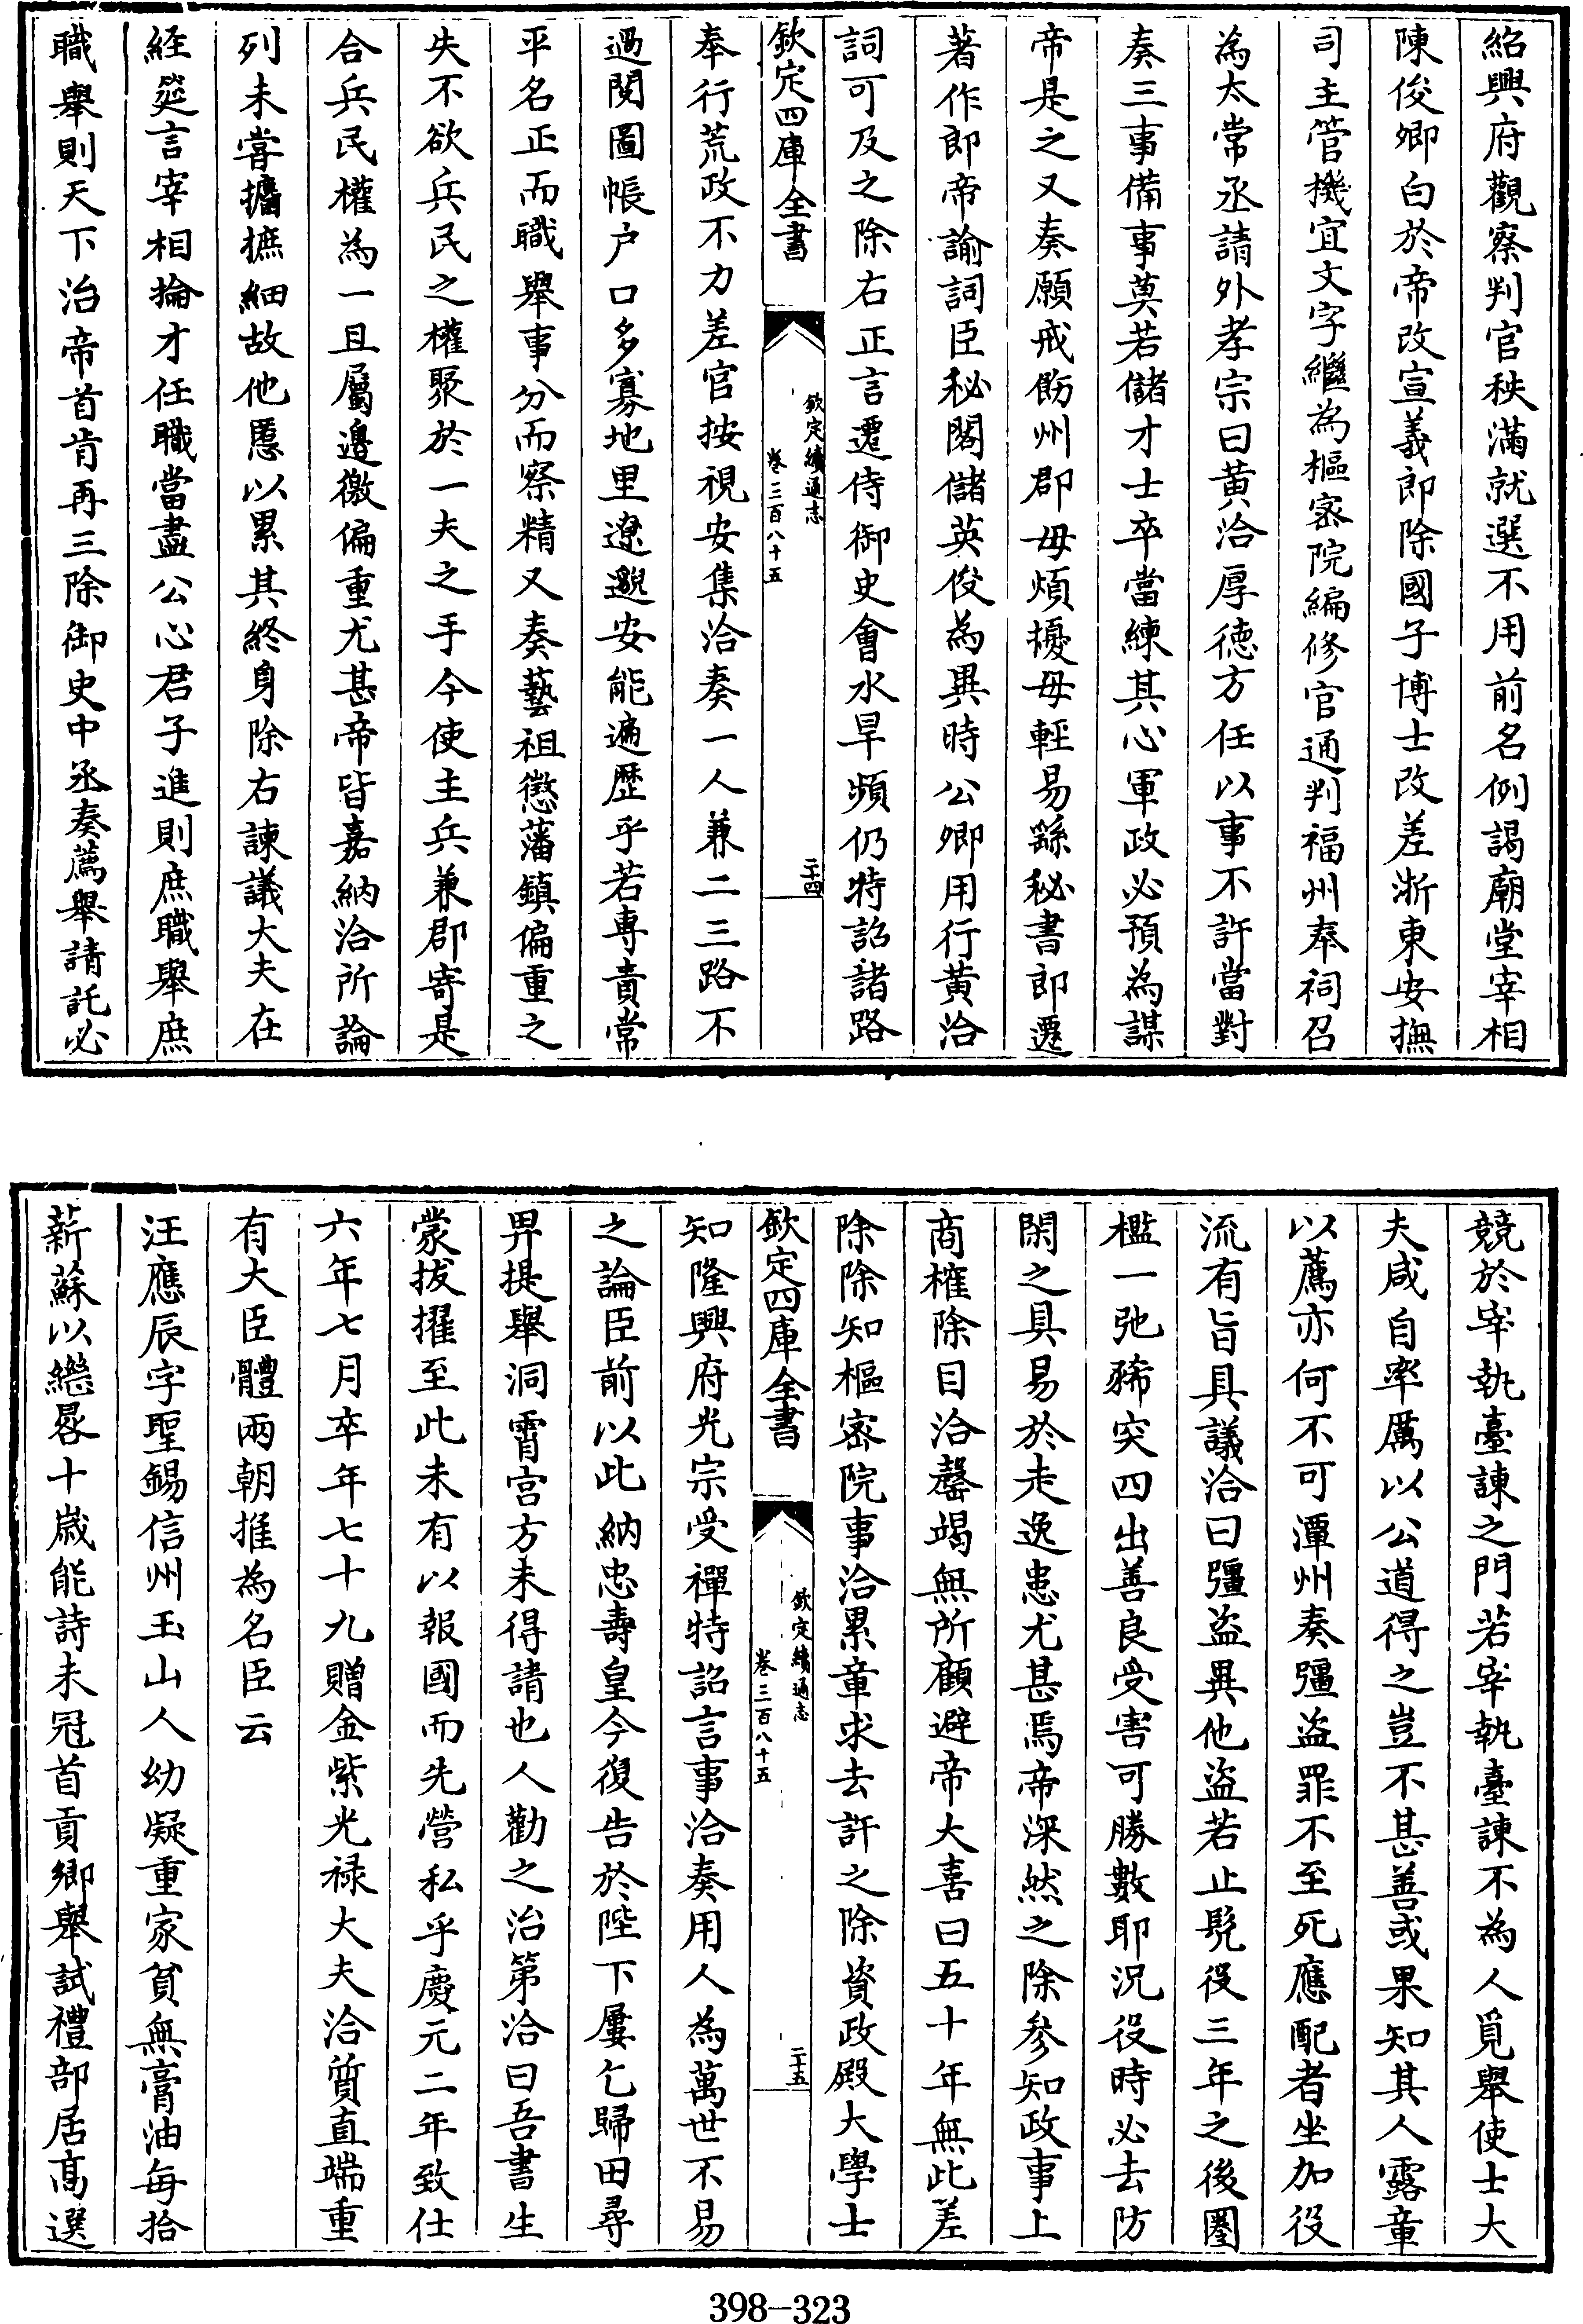 紹興府觀察判官秩滿就選不用前名例謁廟堂宰相
陳俊卿白於帝改宣義郎除國子博士改差浙東安撫
司主管機宜文字繼為樞密院編修官通判福州奉祠召
為太常丞請外孝宗曰黄洽厚德方任以事不許當對
奏三事備事莫若儲才士卒當練其心軍政必預為謀
帝是之又奏願戒飭州郡毋煩擾毋輕易繇秘書郎遷
著作郎帝諭詞臣秘閣儲英俊為異時公卿用行黄洽
詞可及之除右正言遷侍御史會水旱頻仍特詔諸路
欽定四庫全書
欽定續通志
卷三百八十五
二十四
奉行荒政不力差官按視安集洽奏一人兼二三路不
過閱圖帳户口多寡地里遼邈安能遍歷乎若專責常
平名正而職舉事分而察精又奏藝祖懲藩鎮偏重之
失不欲兵民之權聚於一夫之手今使主兵兼郡寄是
合兵民權為一且屬邊徼偏重尤甚帝皆嘉納洽所論
列未嘗攟摭細故他慝以累其終身除右諫議大夫在
経筵言宰相掄才任職當盡公心君子進則庶職舉庶
職舉則天下治帝首肯再三除御史中丞奏薦舉請託必
競於宰執臺諫之門若宰執臺諫不為人覓舉使士大
夫咸自率厲以公道得之豈不甚善或果知其人露章
以薦亦何不可潭州奏彊盜罪不至死應配者坐加役
流有旨具議洽曰彊盜異他盜若止髡役三年之後圈
檻一弛豨突四出善良受害可勝數耶況役時必去防
閑之具易於走逸患尤甚焉帝深然之除參知政事上
商榷除目洽罄竭無所顧避帝大喜曰五十年無此差
除除知樞密院事洽累章求去許之除資政殿大學士
欽定四庫全書
欽定續通志
卷三百八十五
二十五
知隆興府光宗受禪特詔言事洽奏用人為萬世不易
之論臣前以此納忠壽皇今復告於陛下屢乞歸田尋
畀提舉洞霄宫方未得請也人勸之治第洽曰吾書生
蒙拔擢至此未有以報國而先營私乎慶元二年致仕
六年七月卒年七十九贈金紫光禄大夫洽質直端重
有大臣體兩朝推為名臣云
汪應辰字聖錫信州玉山人幼凝重家貧無膏油每拾
薪蘇以繼晷十歲能詩未冠首貢鄉舉試禮部居高選
398-323